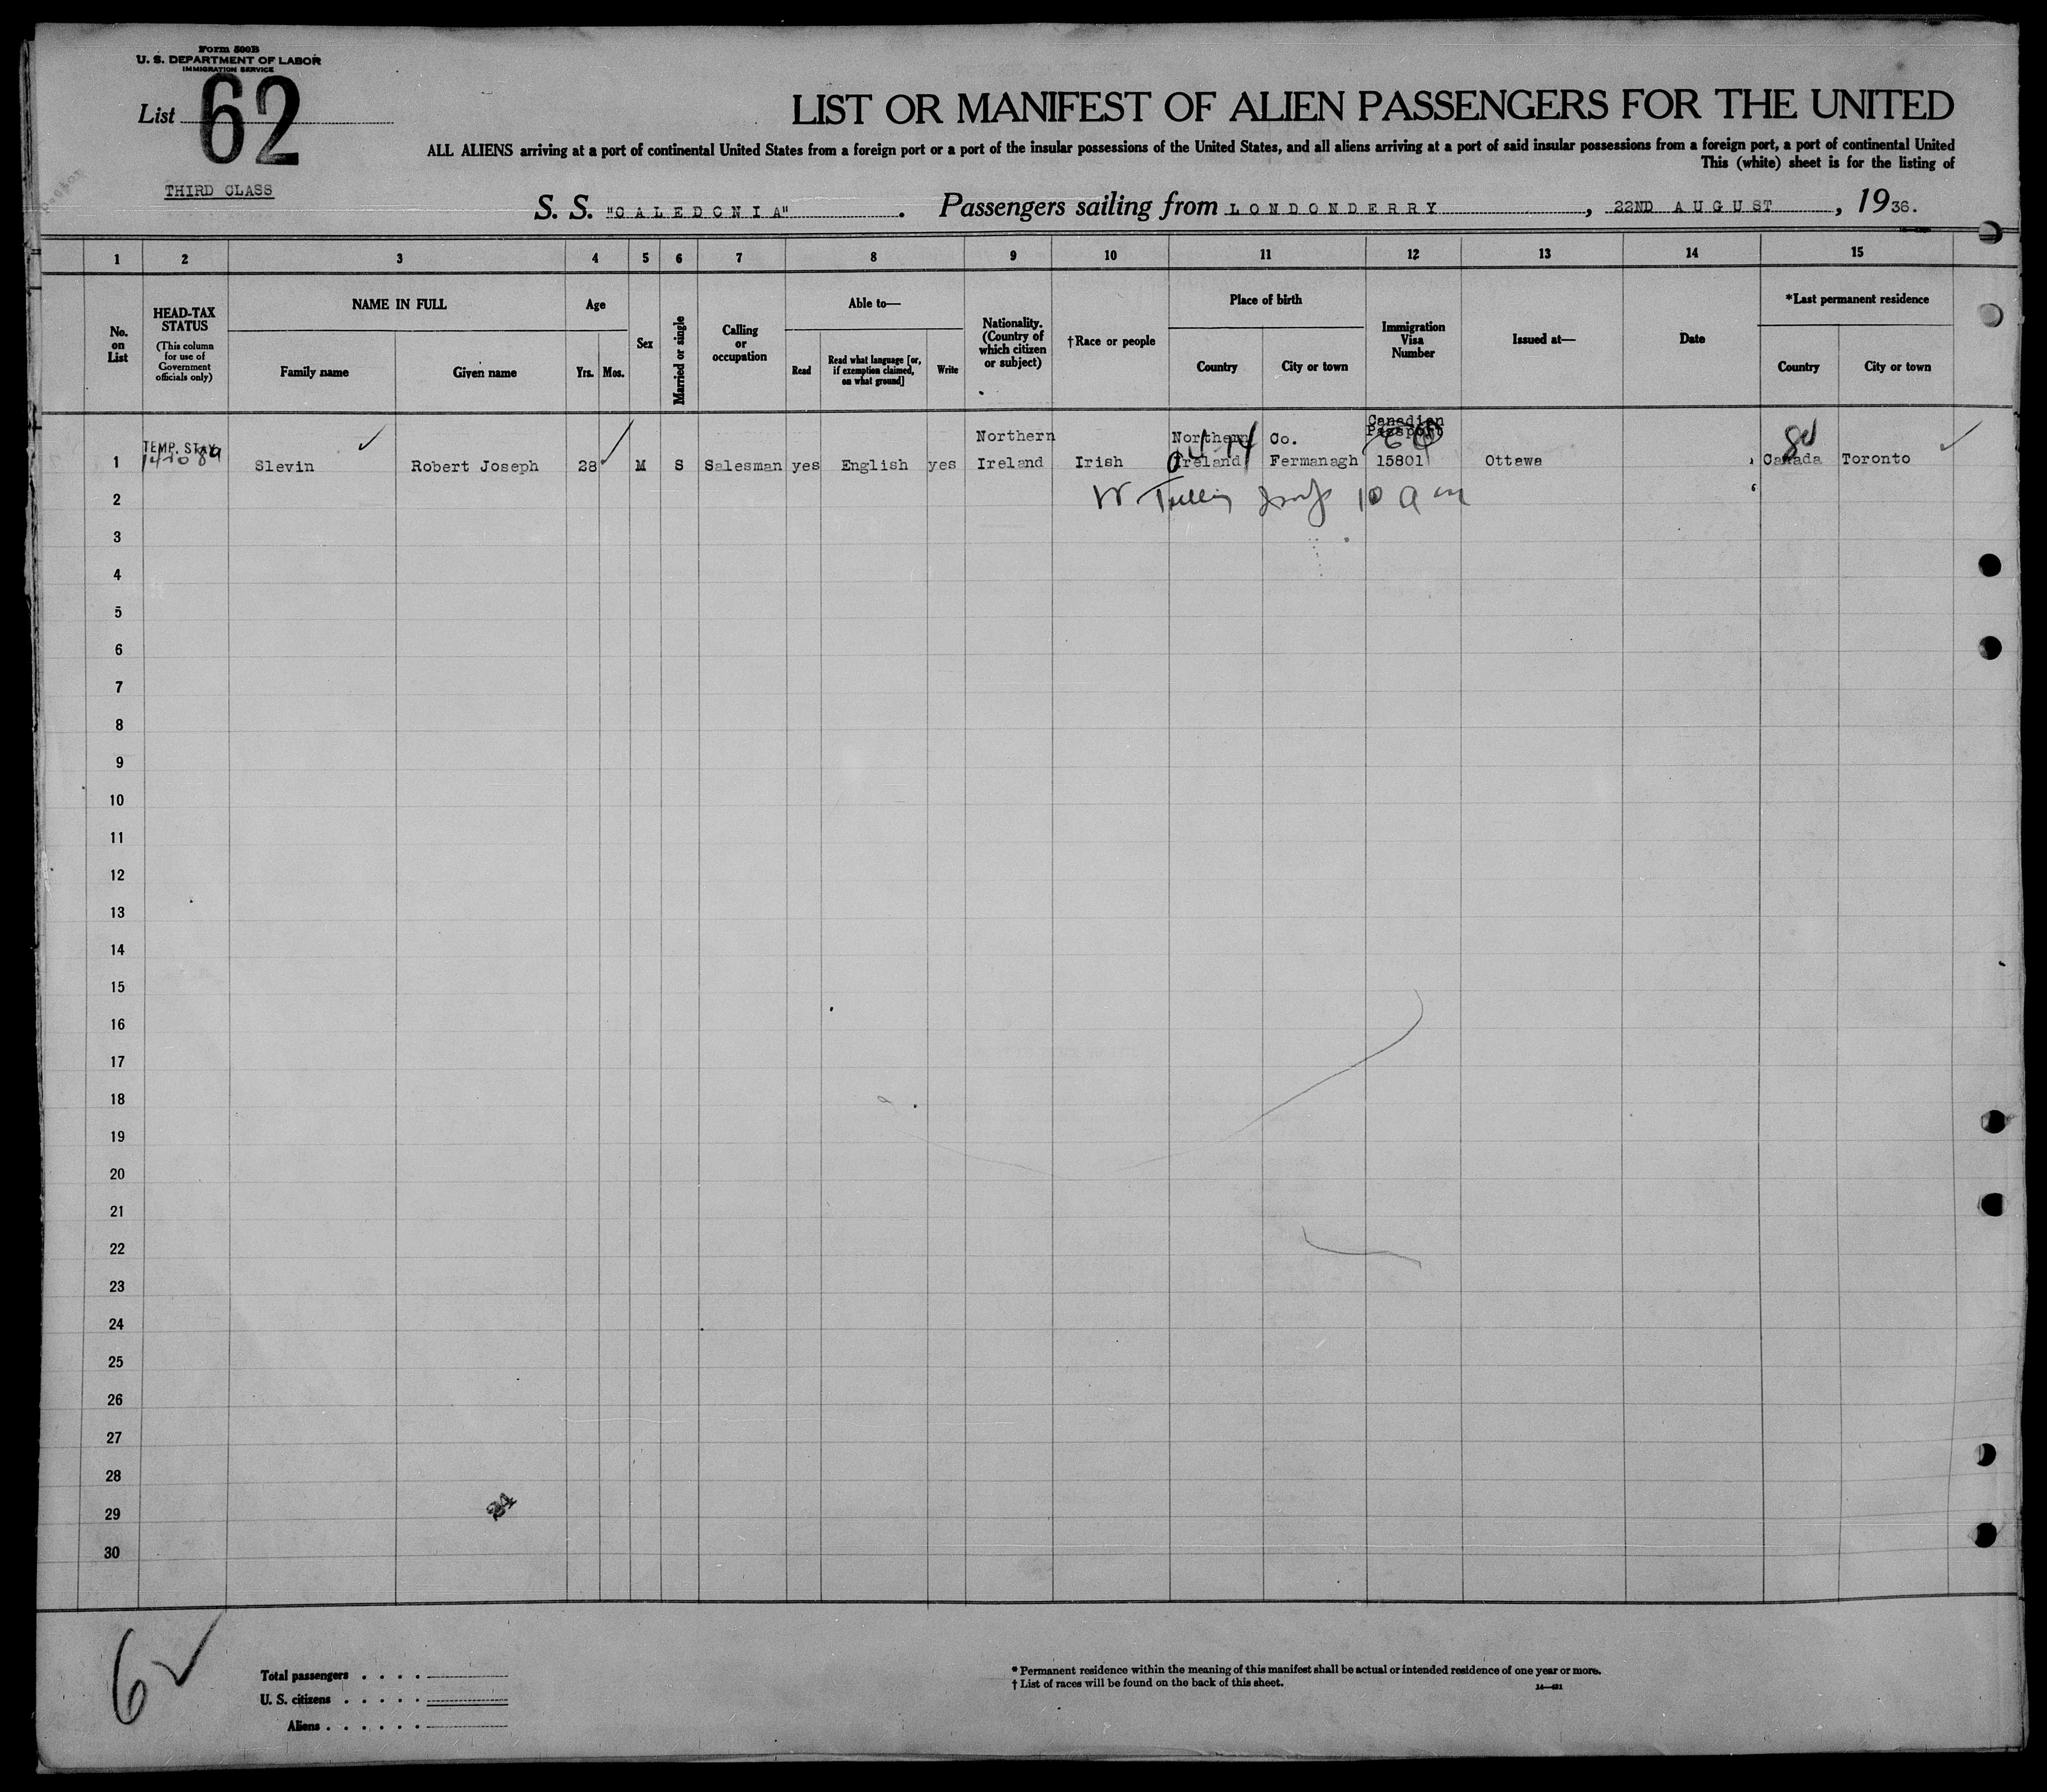 Form 500B
U. S. DEPARTMENT OF LABOR
IMMIGRATION SERVICE
List 62
THIRD CLASS
LIST OR MANIFEST OF ALIEN PASSENGERS FOR THE UNITED
ALL ALIENS arriving at a port of continental United States from a foreign port or a port of the insular possessions of the United States, and all aliens arriving at a port of said insular possessions from a foreign port, a port of continental United
This (white) sheet is for the listing of
S. S. "CALEDONIA". Passengers sailing from LONDONDERRY, 22ND AUGUST, 1936.
1 2 3 4 5 6 7 8 9 10 11 12 13 14 15
No. on List
HEAD-TAX STATUS
(This column for use of Government officials only)
NAME IN FULL
Family name
Given name
Age
Yrs. Mos.
Sex
Married or single
Calling or occupation
Able to—
Read
Read what language [or, if exemption claimed, on what ground]
Write
Nationality. (Country of which citizen or subject)
†Race or people
Place of birth
Country
City or town
Immigration Visa Number
Issued at—
Date
*Last permanent residence
Country
City or town
1 TEMP. STAY Slevin Robert Joseph 28 M S Salesman yes English yes Northern Ireland Irish Northern Ireland Co. Fermanagh Canadian Passport 15801 Ottawa Canada Toronto
2 10 am
3
4
5
6
7
8
9
10
11
12
13
14
15
16
17
18
19
20
21
22
23
24
25
26
27
28
29
30
Total passengers . . . .
U. S. citizens . . . . .
Aliens . . . . . .
* Permanent residence within the meaning of this manifest shall be actual or intended residence of one year or more.
† List of races will be found on the back of this sheet.